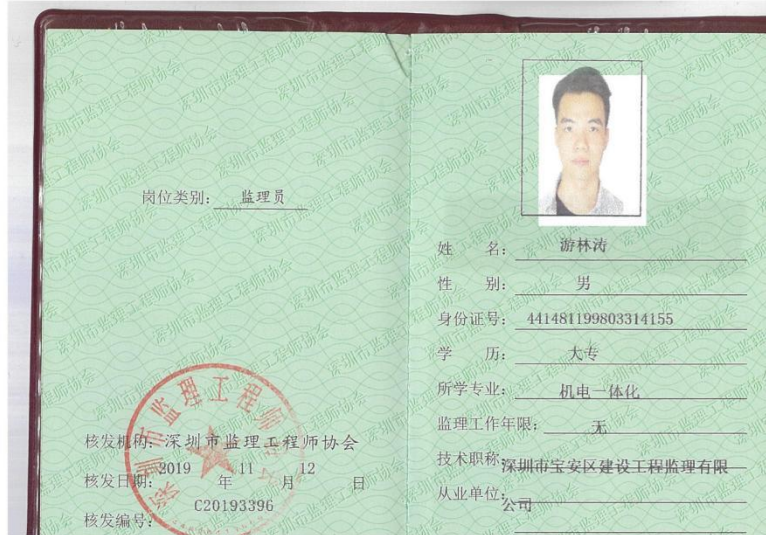 岗位类别：监理员
核发机构：深圳市监理工程师协会
核发日期：2019年11月12日
核发编号：C20193396
深圳市监理工程师协会
姓名：游林涛
性别：男
身份证号：441481199803314155
学历：大专
所学专业：机电一体化
监理工作年限：无
技术职称：
从业单位：深圳市宝安区建设工程监理有限
公司